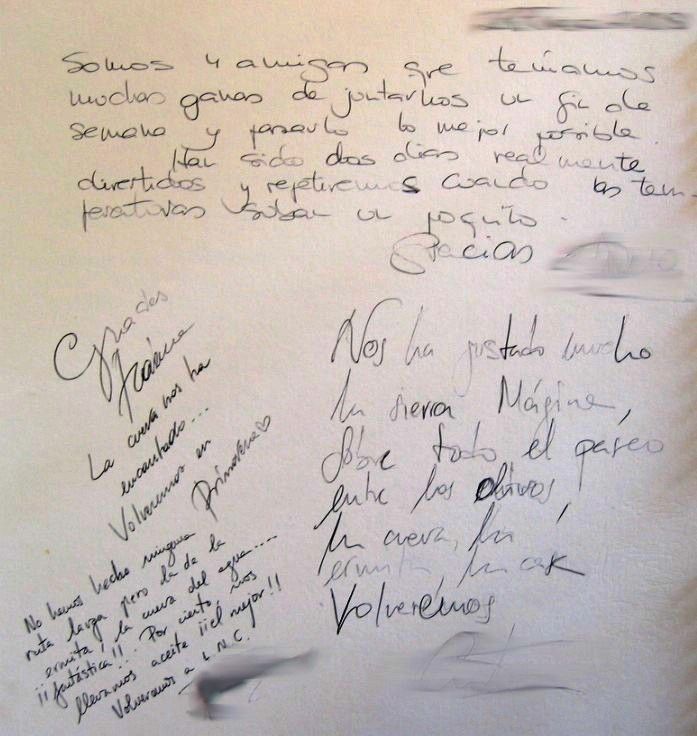 Somos 4 amigas que teníamos
muchas ganas de juntarnos un fin de
semana y pasarlo lo mejor posible.
Han sido dos días realmente
divertidos y repetiremos cuando las tem
peraturas suban un poquito.
Gracias
La cueva nos ha
encantado...
Volveremos en
Primavera♡
No hemos hecho ninguna
ruta larga pero la de la
ermita, la cueva del agua....
¡¡fantástica!!. Por cierto, nos
llevamos aceite ¡¡el mejor!!
Volveremos a L.N.C.
Nos ha gustado mucho
la sierra Mágina,
sobre todo el paseo
entre los olivos,
la cueva, la
ermita, la casa
Volveremos